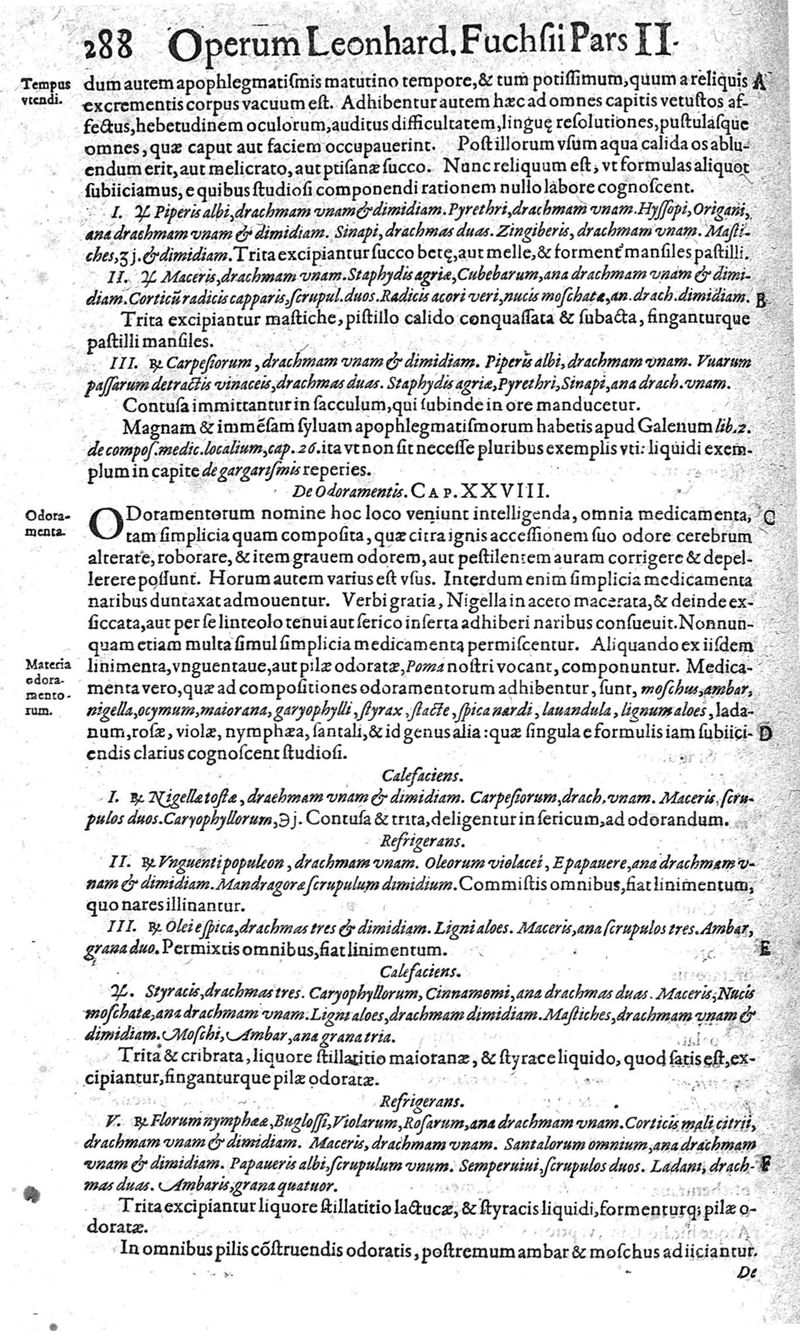 288 Operum Leonhard. Fuchsii Pars II.
Tempus
vtendi.
dum autem apophlegmatiſmis matutino tempore, & tum potiſſimum, quum a reliquis A
excrementis corpus vacuum eſt. Adhibentur autem hæc ad omnes capitis vetuſtos af-
fectus, hebetudinem oculorum, auditus difficultatem, linguę reſolutiones, puſtulaſque
omnes, quæ caput aut faciem occupauerint. Poſt illorum vſum aqua calida os ablu-
endum erit, aut melicrato, aut ptiſanæ ſucco. Nunc reliquum eſt, vt formulas aliquot
ſubiiciamus, e quibus ſtudioſi componendi rationem nullo labore cognoſcent.
I. ℞ Piperis albi, drachmam vnam & dimidiam. Pyrethri, drachmam vnam. Hyſſopi, Origani,
ana drachmam vnam & dimidiam. Sinapi, drachmas duas. Zingiberis, drachmam vnam. Maſti-
ches, ʒ j. & dimidiam. Trita excipiantur ſucco betę, aut melle, & forment' manſiles paſtilli.
II. ℞ Maceris, drachmam vnam. Staphydis agriæ, Cubebarum, ana drachmam vnam & dimi-
diam. Corticũ radicis capparis, ſcrupul. duos. Radicis acori veri, nucis moſchatæ, an. drach. dimidiam. B
Trita excipiantur maſtiche, piſtillo calido conquaſſata & ſubacta, finganturque
paſtilli manſiles.
III. ℞ Carpeſiorum, drachmam vnam & dimidiam. Piperis albi, drachmam vnam. Vuarum
paſſarum detractis vinaceis, drachmas duas. Staphydis agriæ, Pyrethri, Sinapi, ana drach. vnam.
Contuſa immittantur in ſacculum, qui ſubinde in ore manducetur.
Magnam & immẽſam ſyluam apophlegmatiſmorum habetis apud Galenum lib. 2.
de compoſ. medic. localium, cap. 26. ita vt non ſit neceſſe pluribus exemplis vti: liquidi exem-
plum in capite de gargariſmis reperies.
De Odoramentis. CAP. XXVIII.
Odora-
menta.
ODoramentorum nomine hoc loco veniunt intelligenda, omnia medicamenta, C
tam ſimplicia quam compoſita, quæ citra ignis acceſſionem ſuo odore cerebrum
alterare, roborare, & item grauem odorem, aut peſtilentem auram corrigere & depel-
lere re poſſunt. Horum autem varius eſt vſus. Interdum enim ſimplicia medicamenta
naribus duntaxat admouentur. Verbi gratia, Nigella in aceto macerata, & deinde ex-
ſiccata, aut per ſe linteolo tenui aut ſerico inſerta adhiberi naribus conſueuit. Nonnun-
quam etiam multa ſimul ſimplicia medicamenta permiſcentur. Aliquando ex iiſdem
Materia
odora-
mento-
rum.
linimenta, vnguenta ue, aut pilæ odoratæ, Poma noſtri vocant, componuntur. Medica-
menta vero, quæ ad compoſitiones odoramentorum adhibentur, ſunt, moſchus, ambar,
nigella, ocymum, maiorana, garyophylli, ſtyrax, ſtacte, ſpica nardi, lauandula, lignum aloes, lada-
num, roſæ, violæ, nymphæa, ſantali, & id genus alia: quæ ſingula e formulis iam ſubiici- D
endis clarius cognoſcent ſtudioſi.
Calefaciens.
I. ℞ Nigellæ toſtæ, drachmam vnam & dimidiam. Carpeſiorum, drach. vnam. Maceris, ſcru-
pulos duos. Caryophyllorum, ℈ j. Contuſa & trita, deligentur in ſericum, ad odorandum.
Refrigerans.
II. ℞ Vnguenti populeon, drachmam vnam. Oleorum violacei, E papauere, ana drachmam v-
nam & dimidiam. Mandragoræ ſcrupulum dimidium. Commiſtis omnibus, fiat linimentum,
quo nares illinantur.
III. ℞ Olei e ſpica, drachmas tres & dimidiam. Ligni aloes. Maceris, ana ſcrupulos tres. Ambar,
grana duo. Permixtis omnibus, fiat linimentum. E
Calefaciens.
℞. Styracis, drachmas tres. Caryophyllorum, Cinnamomi, ana drachmas duas. Maceris, Nucis
moſchatæ, ana drachmam vnam. Ligni aloes, drachmam dimidiam. Maſtiches, drachmam vnam &
dimidiam. Moſchi, Ambar, ana grana tria.
Trita & cribrata, liquore ſtillatitio maioranæ, & ſtyrace liquido, quod ſatis eſt, ex-
cipiantur, finganturque pilæ odoratæ.
Refrigerans.
V. ℞ Florum nymphææ, Bugloſſi, Violarum, Roſarum, ana drachmam vnam. Corticis mali citrii,
drachmam vnam & dimidiam. Maceris, drachmam vnam. Santalorum omnium, ana drachmam
vnam & dimidiam. Papaueris albi, ſcrupulum vnum. Semperuiui, ſcrupulos duos. Ladani, drach- F
mas duas. Ambaris, grana quatuor.
Trita excipiantur liquore ſtillatitio lactucæ, & ſtyracis liquidi, formenturq; pilæ o-
doratæ.
In omnibus pilis cõſtruendis odoratis, poſtremum ambar & moſchus adiiciantur.
De